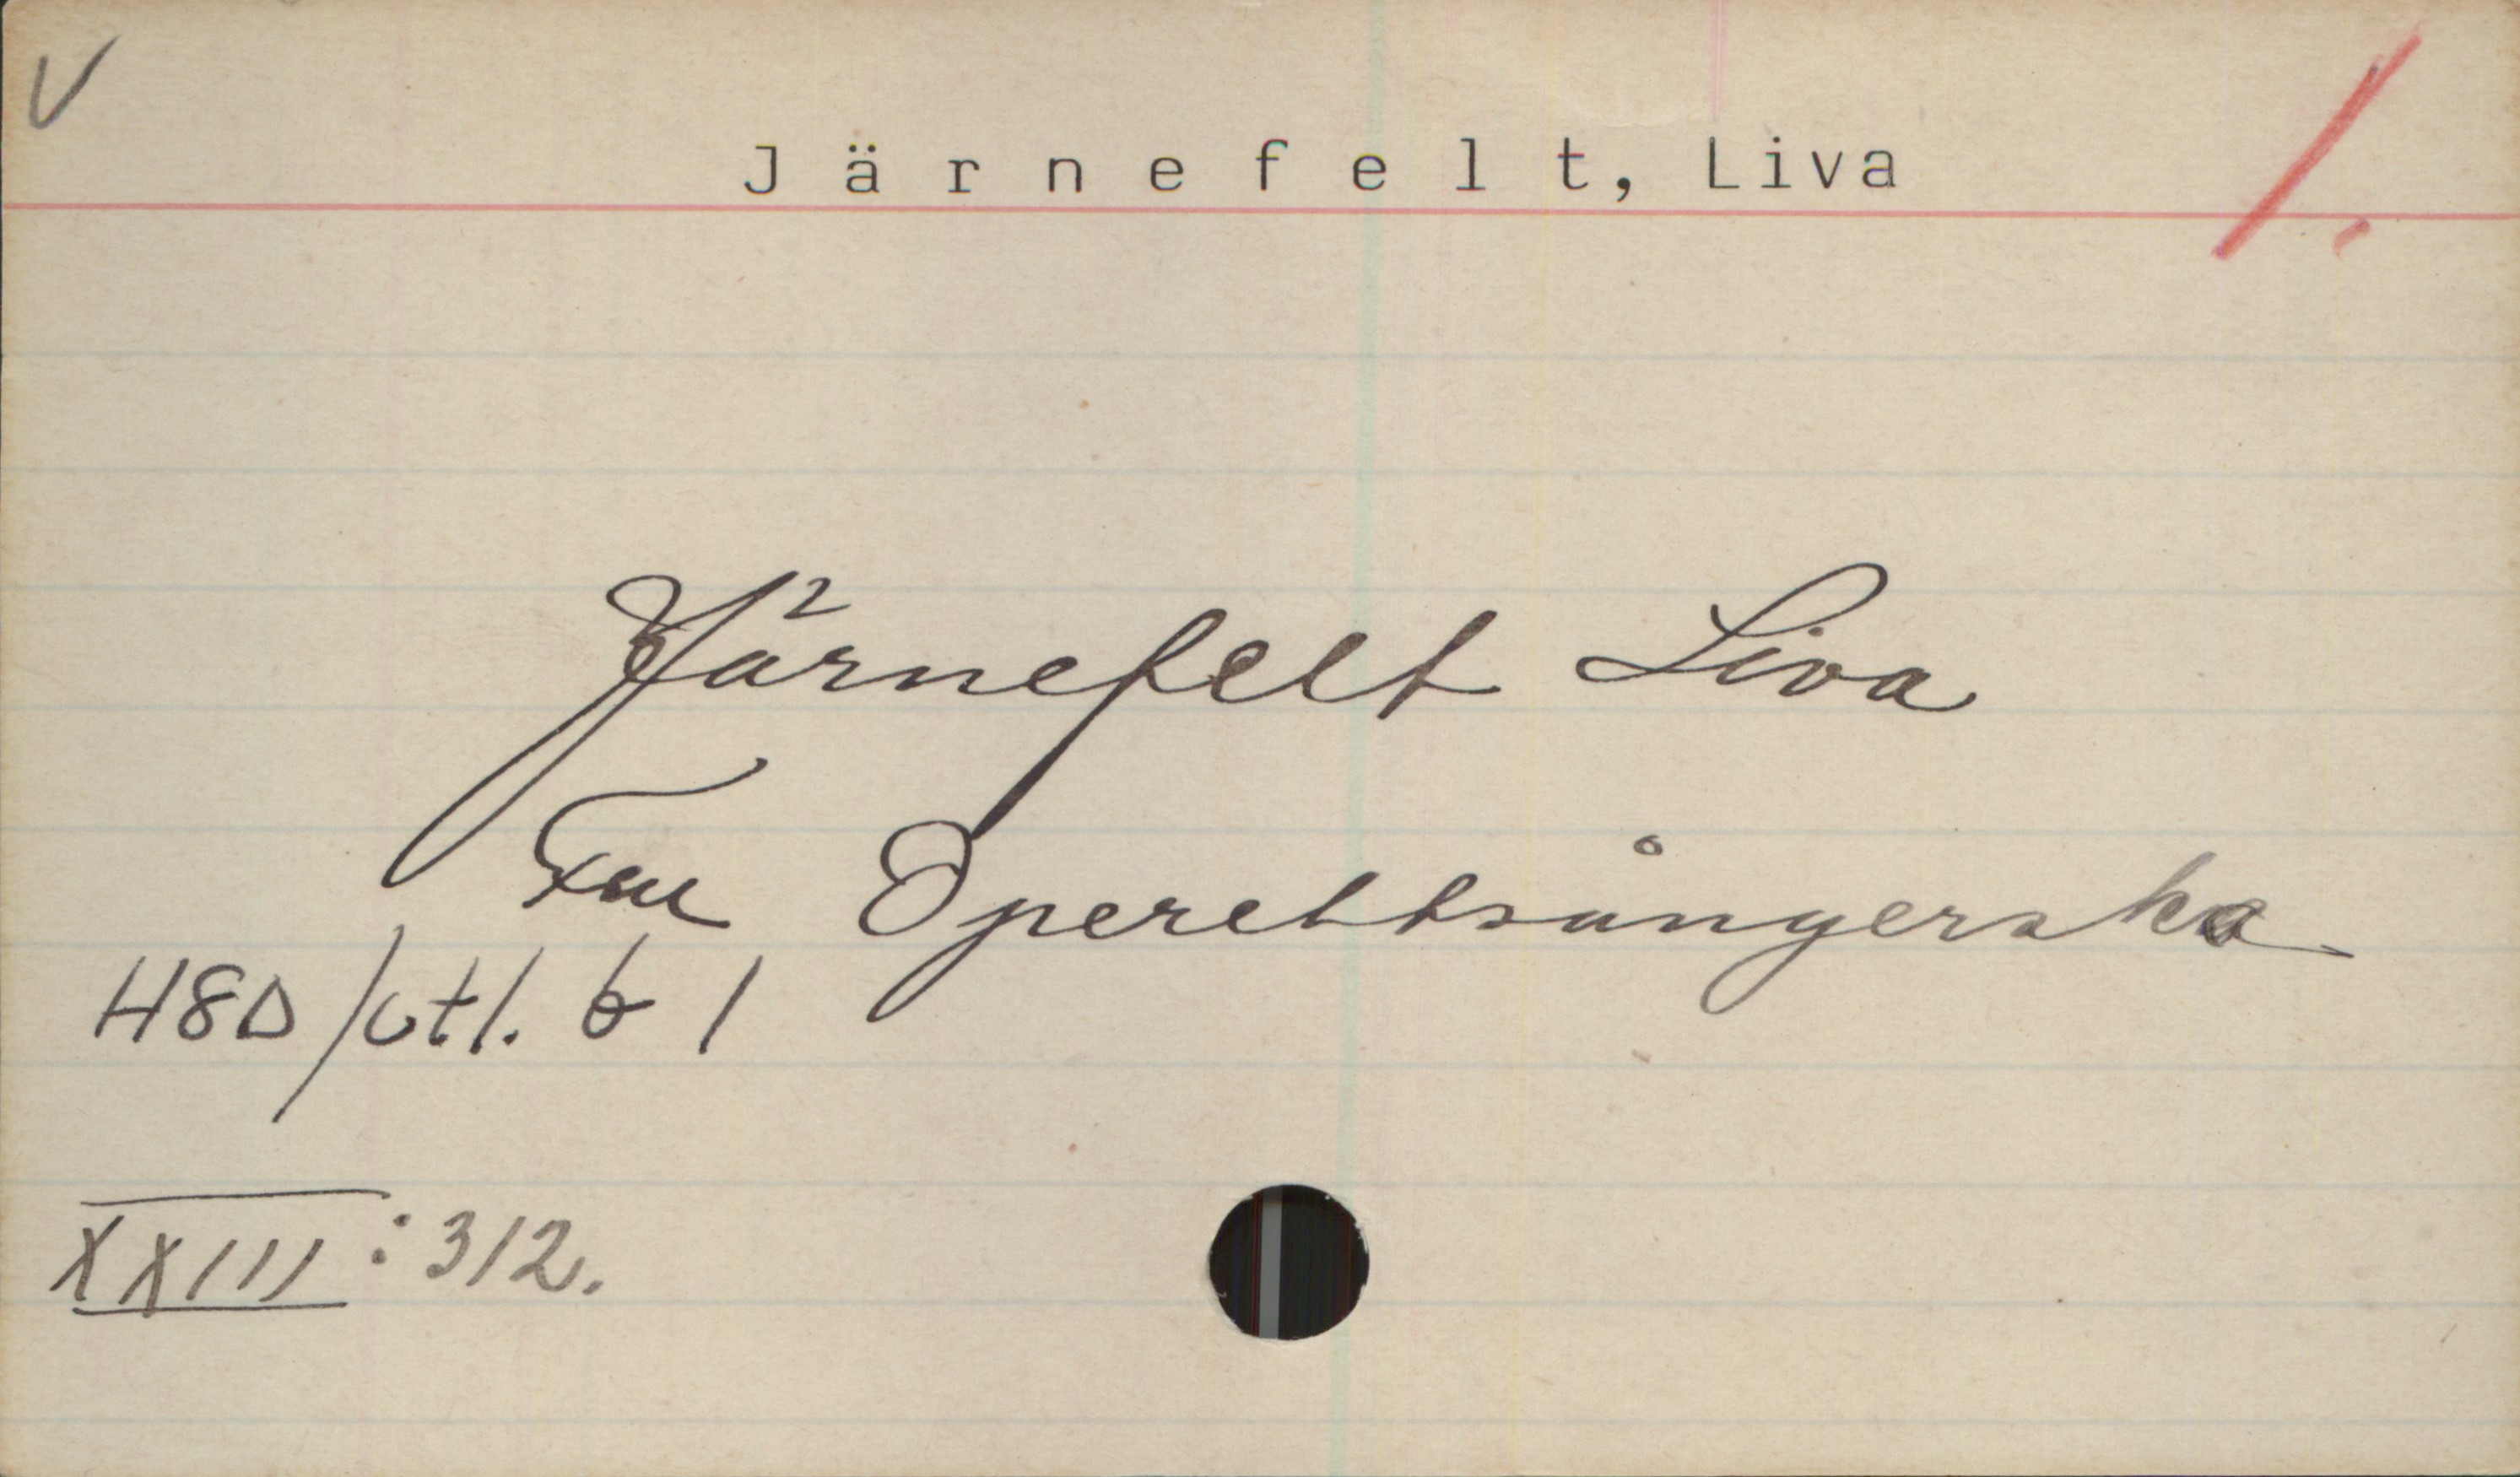 V
J ä r n e f e l t, Liva
/.
Järnefelt Liva
Fru Operettsångerska
H8D/utl. b 1
XXIII:312.